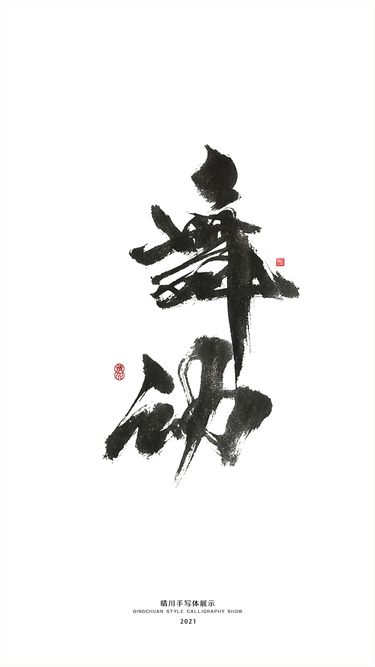 舞动
晴川手写体展示
QINGCHUAN STYLE CALLIGRAPHY SHOW
2021